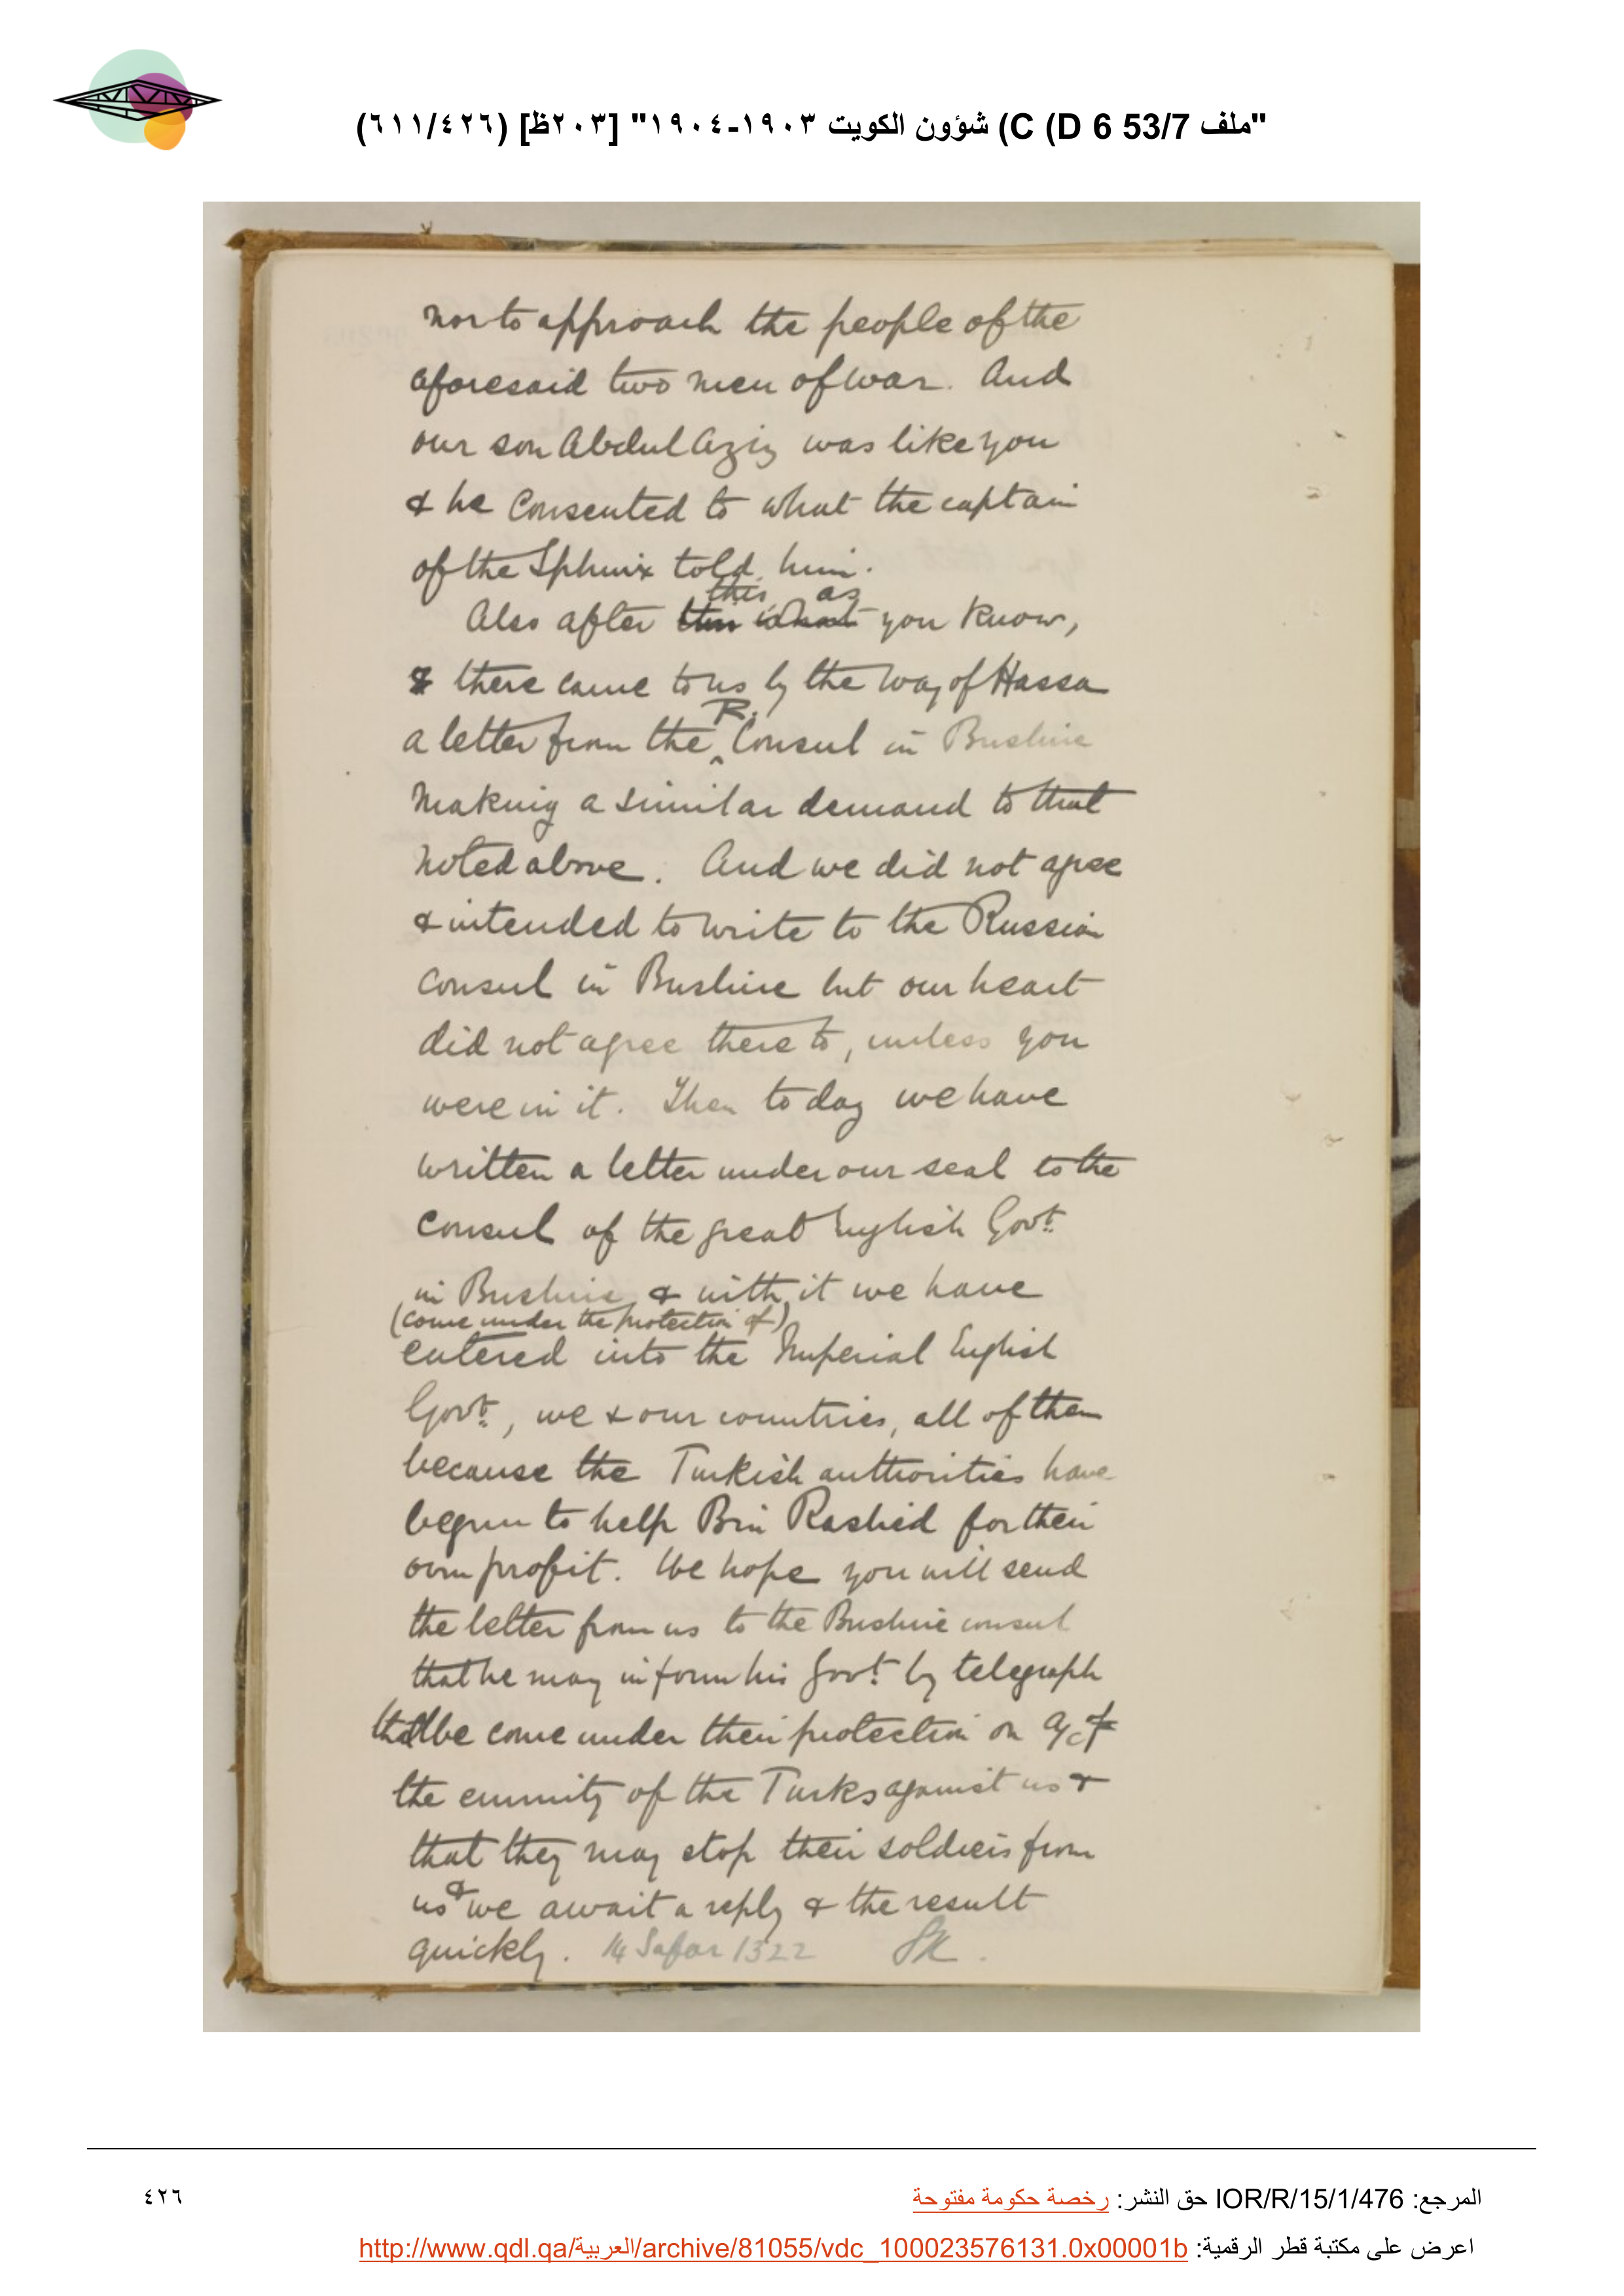 "ملف 53/7 D 6) C) شؤون الكويت ١٩٠٣-١٩٠٤" [٢٠٣ظ] (٦١١/٤٢٦)
nor to approach the people of the
aforesaid two men of war. And
our son Abdul Aziz was like you
& he consented to what the captain
of the Sphinx told him.
this as
Also after this what you know,
& there came to us by the way of Hassa
R.
a letter from the ^ Consul in Bushire
making a similar demand to that
noted above. And we did not agree
& intended to write to the Russian
Consul in Bushire but our heart
did not agree there to, unless you
were in it. Then to day we have
written a letter under our seal to the
Consul of the great English Govt.
in Bushire & with it we have
(come under the protection of)
entered into the Imperial English
Govt., we & our countries, all of them
because the Turkish authorities have
begun to help Bin Rashid for their
own profit. We hope you will send
the letter from us to the Bushire consul
that he may inform his Govt. by telegraph
that we come under their protection on a/c of
the enmity of the Turks against us &
that they may stop their soldiers from
us & we await a reply & the result
quickly. 14 Safar 1322
المرجع: IOR/R/15/1/476 حق النشر: رخصة حكومة مفتوحة
٤٢٦
اعرض على مكتبة قطر الرقمية: http://www.qdl.qa/العربية/archive/81055/vdc_100023576131.0x00001b